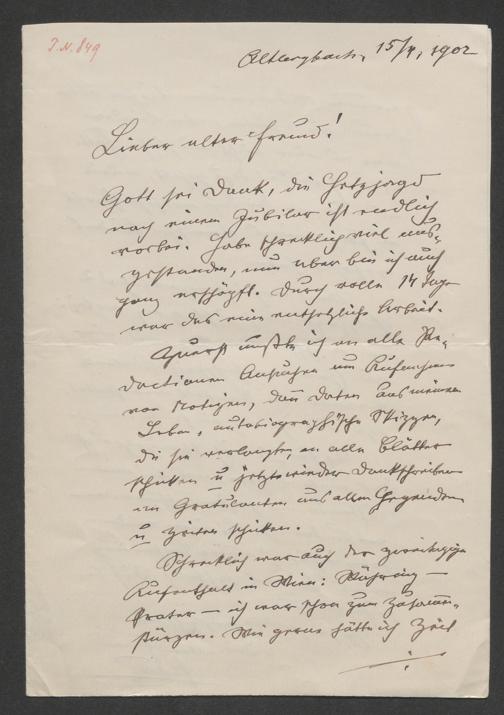 I.N. 849
Altlengbach, 15/4, 1902
Lieber alter Freund!
Gott sei Dank, die Hetzjagd
nach einem Jubilar ist endlich
vorbei. Habe schrecklich viel aus-
gestanden, nun aber bin ich auch
ganz erschöpft. Durch volle 14 Tage
war das eine entsetzliche Arbeit.
Zuerst mußte ich an alle Re-
dactionen Ansuchen um Aufnahme
von Notizen, dann Daten aus meinem
Leben, autobiographische Skizzen,
die sie verlangten, an alle Blätter
schicken u jetzt wieder Dankschreiben
an Gratulanten aus allen Gegenden
u Zeiten schicken.
Schrecklich war auch der zweitägige
Aufenthalt in Wien: Währing —
Prater — ich war schon zum Zusammen-
stürzen. Wie gerne hätte ich Zeit